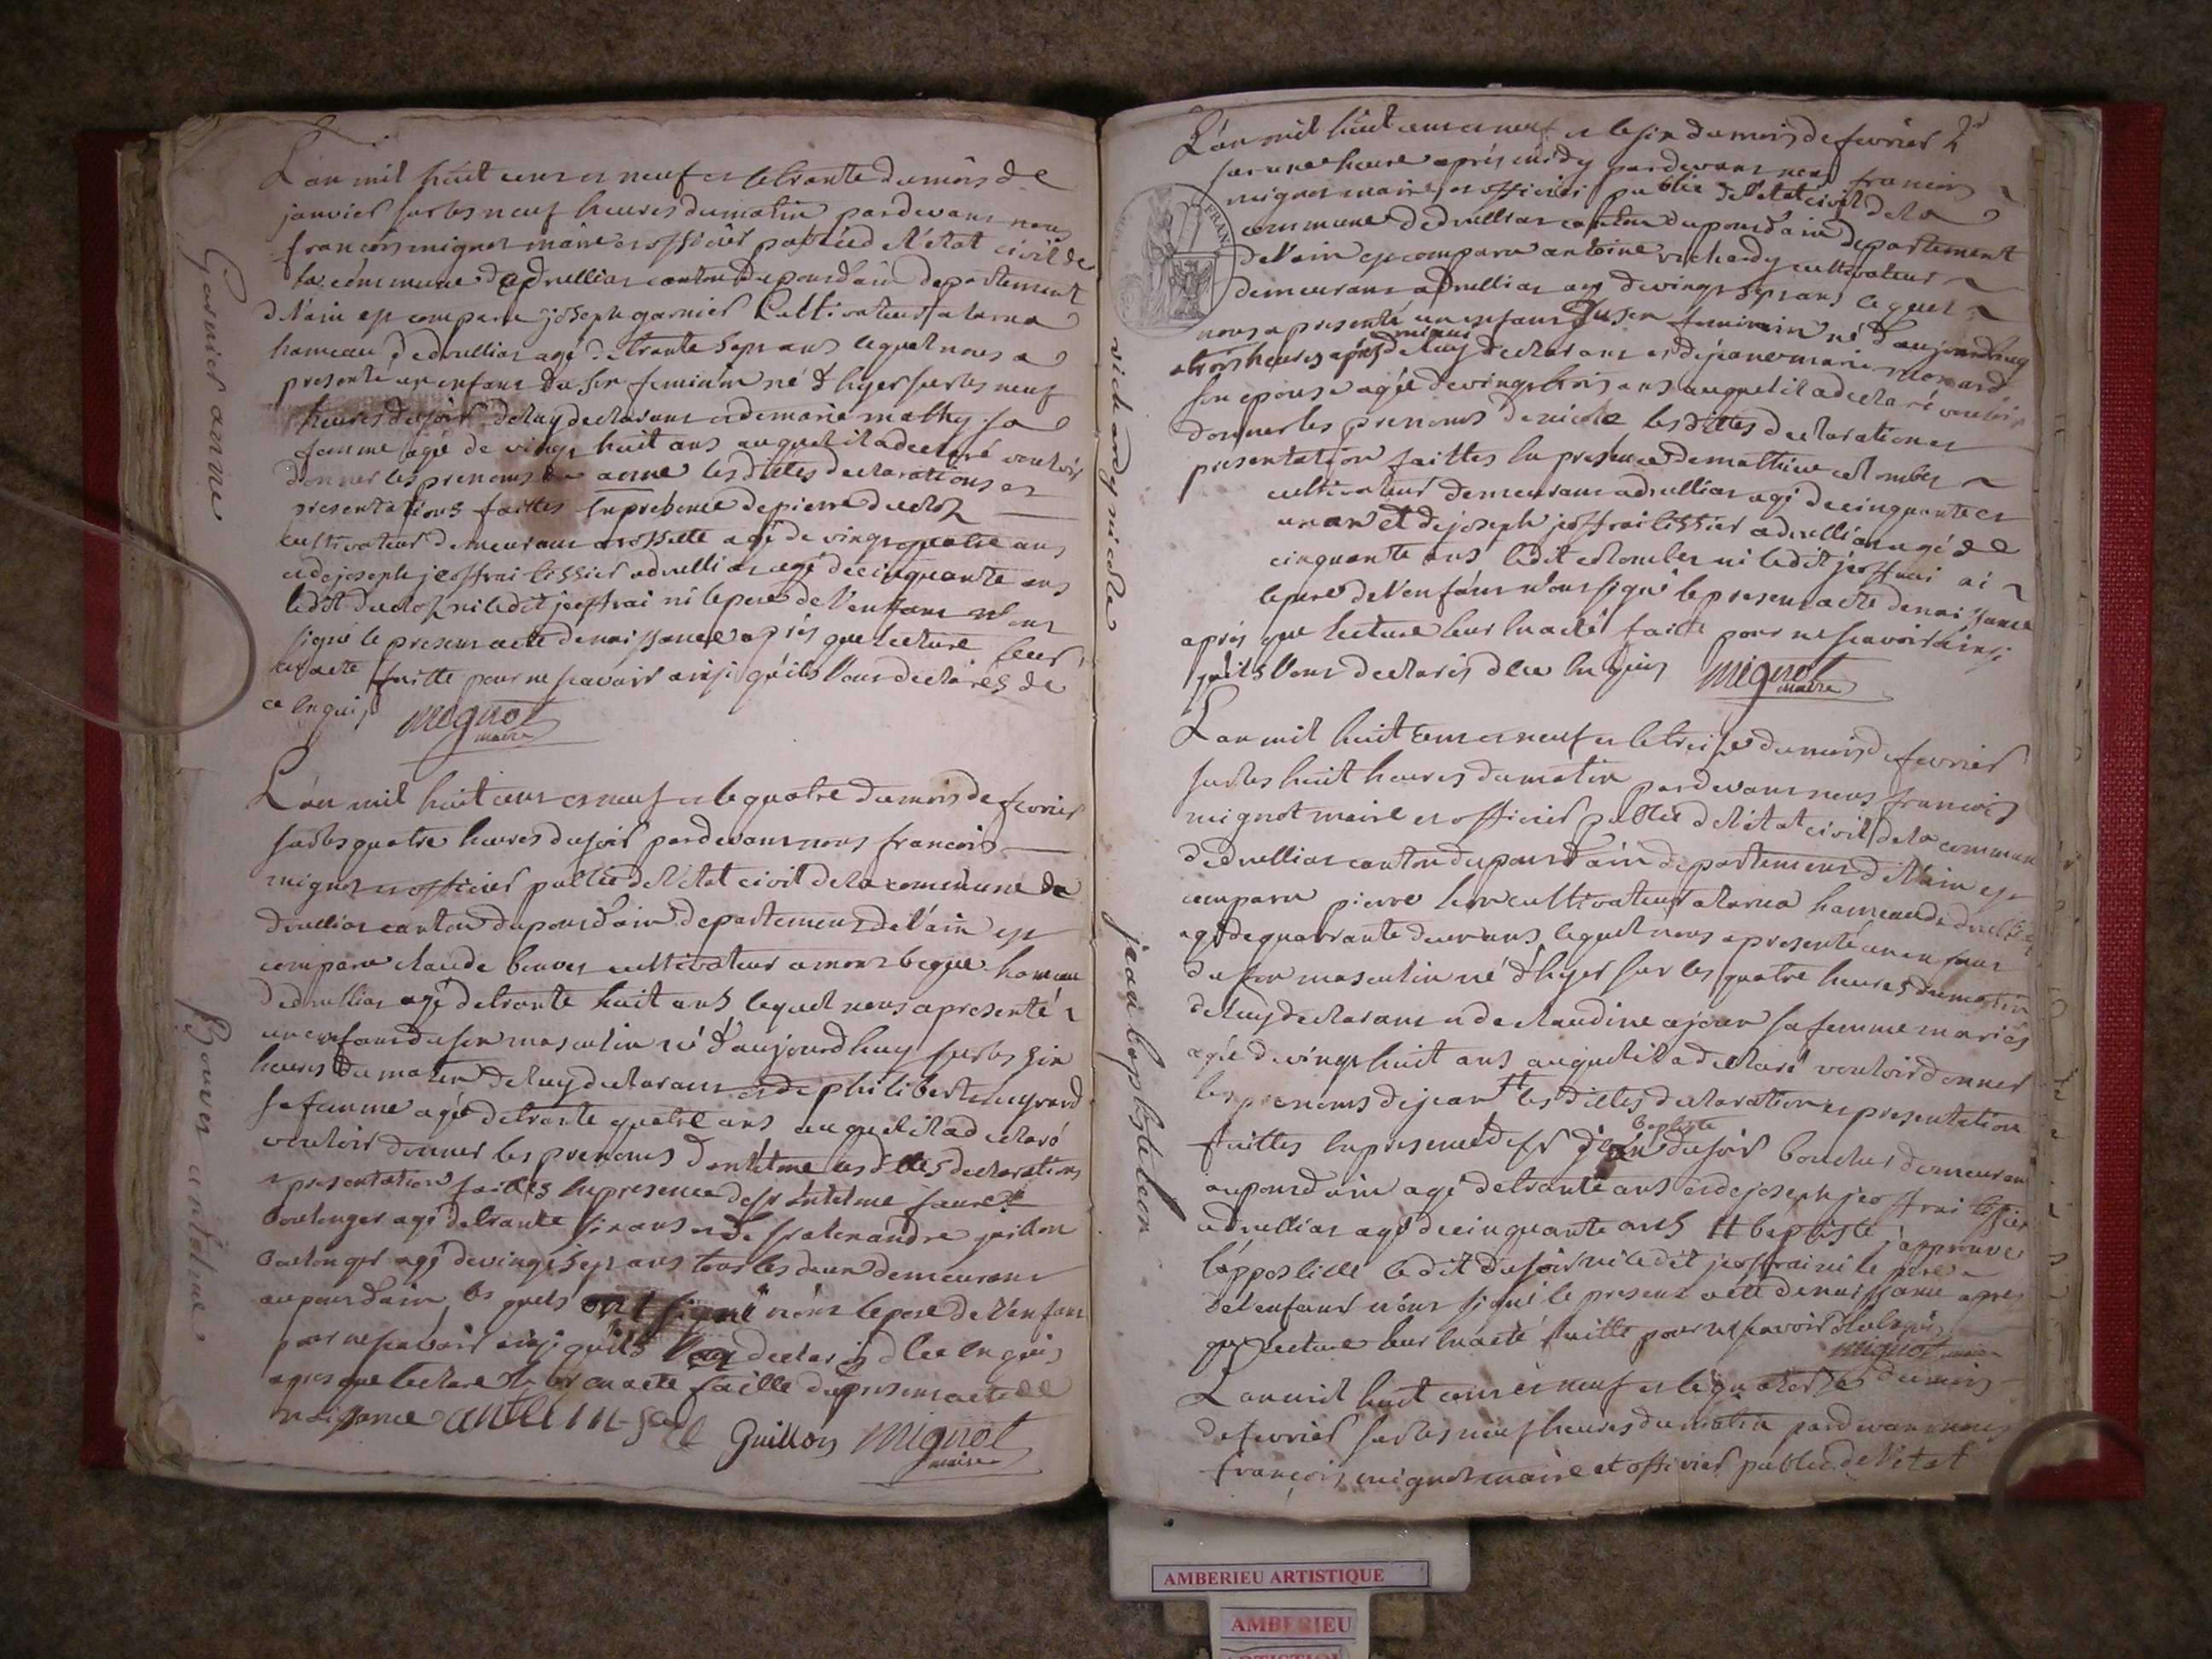 L'an mil huit cens et neuf et le trante du mois de
janvier sur les neuf heures du matin pardevans nous
françois mignot maire et officier public de l'état civil de
la commune de druillias canton du pons dain departement
de l'ain est comparu joseph garnier Cultivateur a
hameau de druillias agé de trante sept ans lequel nous a
presenté un enfans du sex feminin né d'hyer sur les neuf
heures du soir de luy declarans et de marie mathy sa
femme agé de vingt huit ans auquel il a declaré vouloir
donner les prenoms de anne les dittes declarations et
presentations faittes en presence de pierre
cultivateur demeurans a rossette agé de vingt quatre ans
et de joseph jeoffrai tissier a druillias agé de cinquante ans
ledit ni ledit jeoffrai ni le pere de l'enfans n'ons
signé le presens acte de naissance après que lecture leur
en acte faitte pour ne scavoir ainsi qu'ils l'ons declarés de
ce enquis mignot
maire
Garnier anne
L'an mil huit cens et neuf et le quatre du mois de fevrier
sur les quatre heures du soir pardevans nous francois
mignot et officier public de l'état civil de la commune de
druillias canton du pons d'ain departemens de l'ain est
comparu claude bouver cultivateur a mons begue hameau
de druillias agé de trante huit ans lequel nous a presenté
un enfans du sex masculin né d'aujourdhuy sur les six
heures du matin de luy declarans et de philiberte
sa femme agé de trante quatre ans auquel il a declaré
vouloir donner les prenoms d'antelme les dittes declarations
et presentation faittes en presence de sr antelme faure
boulenger agé de trante six ans et de sr alexandre guillon
boulenger agé de vingt sept ans tous les deux demeurans
au pons dain les quels ont signé n'ons le pere de l'enfans
pour ne scavoir ainsi qu'il l'a declaré de ce enquis
apres que lecture leur en acte faitte du presens acte de
naissance
Guillon mignot
maire
Bouver antelme
L'an mil huit cens et neuf et le six du mois de fevrier
sur une heure après midy pardevans nous francois
mignot maire et officier public de l'état civil de la
commune de druillias canton du pons d'ain departement
de l'ain est comparu antoine vichardy cultivateur
demeurans a druillias agé de vingt sept ans lequel
nous a presenté un enfans du sex feminin né d'aujourdhuy
minuit
a trois heures après de luy declarans et de jeane marie monard
son epouse agée de vingt trois ans auquel il a declaré vouloir
donner les prenoms de nicole les dittes declaration et
presentation faittes en presence de mathieu colomber
cultivateur demeurans a druillias agé de cinquante et
un an et de joseph jeoffrai tissier a druillias agé de
cinquante ans ledit colomber ni ledit jeoffrai ni
le pere de l'enfans n'ons signé le presens acte de naissance
après que lecture leur en acte faitte pour ne scavoir ainsi
qu'ils l'ons declarés de ce enquis mignot
maire
vichardy nicole
L'an mil huit cens et neuf et le treise du mois de fevrier
sur les huit heures du matin pardevans nous francois
mignot maire et officier public de l'état civil de la commune
de druillias canton du pons d'ain departemens de l'ain est
comparu pierre leon cultivateur a hameau de druillias
agé de quarrante deux ans lequel nous a presenté un enfans
du sex masculin né d'hyer sur les quatre heures du matin
de luy declarans et de claudine sa femme mariés
agée de vingt huit ans auquel il a declaré vouloir donner
les prenoms de jean # les dittes declaration et presentation
baptiste
faittes en presence de sr jean dujoir boucher demeurans
au pons d'ain agé de trante ans et de joseph jeoffrai tissier
a druillias agé de cinquante ans # baptiste j'approuve
l'appostille ledit dujoir ni ledit jeoffrai ni le pere
de l'enfans n'ons signé le presens acte de naissance apres
que lecture leur en acte faitte pour ne scavoir de ce enquis
mignot maire
jean baptiste leon
L'an mil huit cens et neuf et le quatorze du mois
de fevrier sur les neuf heures du matin pardevans nous
françois mignot maire et officier public de l'état
FRAN
AMBERIEU ARTISTIQUE
AMBERIEU
ARTISTIQUE